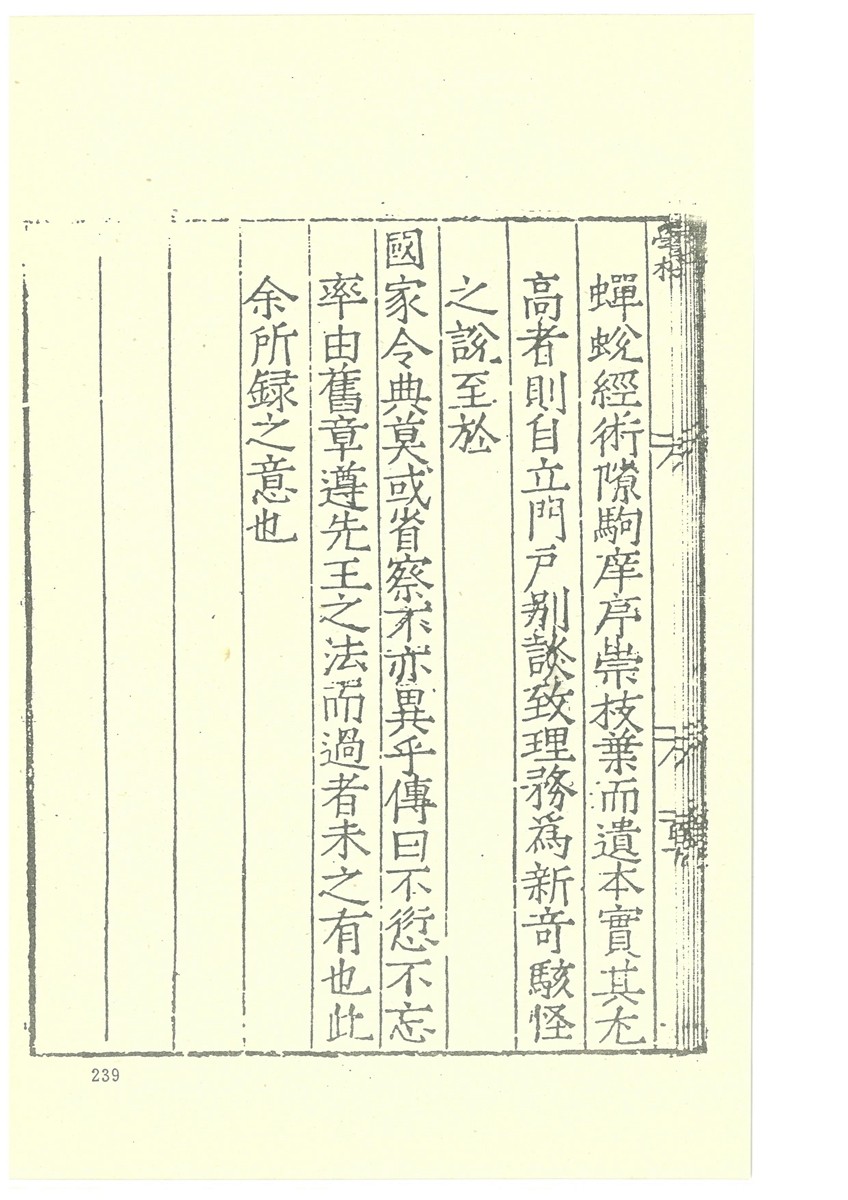 蟬蛻經術隙駒庠序崇枝葉而遺本實其尤
高者則自立門戶別談致理務爲新奇駭怪
之說至於
國家令典莫或省察不亦異乎傳曰不愆不忘
率由舊章遵先王之法而過者未之有也此
余所録之意也
239